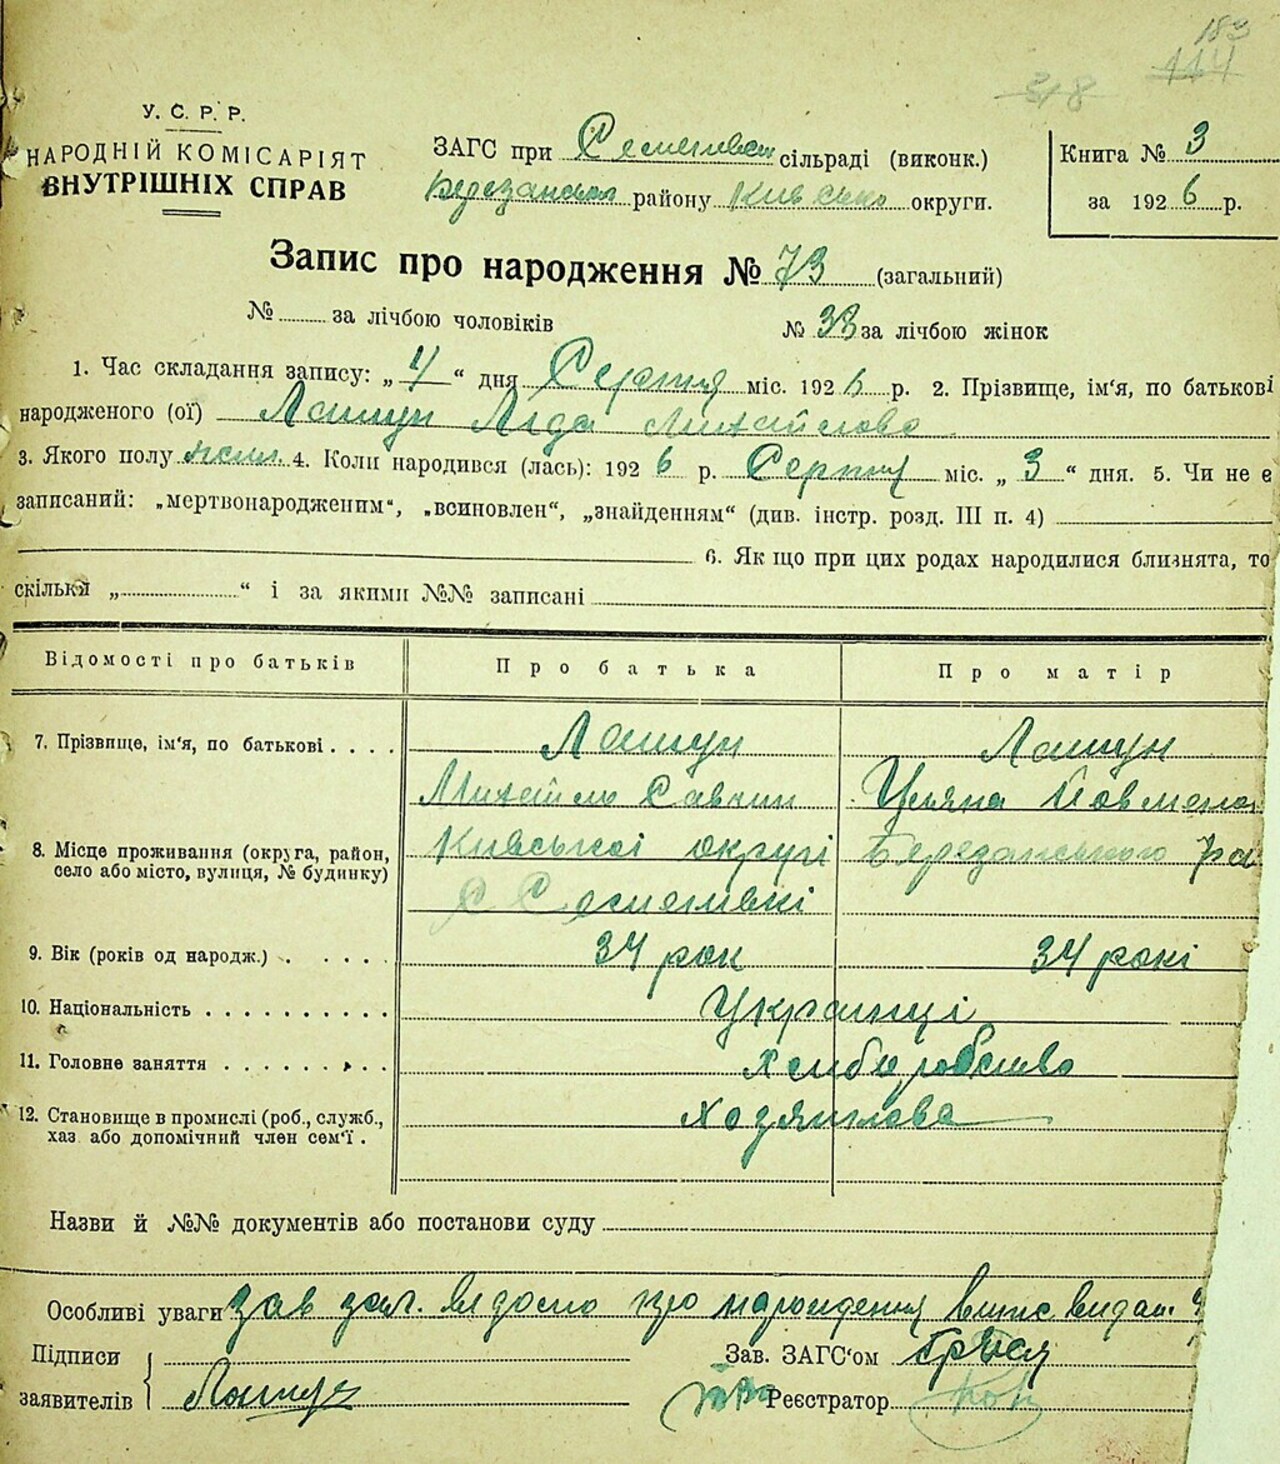 183
114
318
У. С. Р. Р.
НАРОДНІЙ КОМІСАРІЯТ
ВНУТРІШНІХ СПРАВ
ЗАГС при сільраді (виконк.)
району Київсько округи.
Книга № 3
за 1926 р.
Запис про народження № 73 (загальний)
№ за лічбою чоловіків
№ 33 за лічбою жінок
1. Час складання запису: „4“ дня Серпня міс. 1926 р. 2. Прізвище, ім'я, по батькові
народженого (ої) Лашун Ліда Михайлова
3. Якого полу 4. Коли народився (лась): 1926 р. Серпня міс. „3“ дня. 5. Чи не є
записаний: „мертвонародженим“, „всиновлен“, „знайденням“ (див. інстр. розд. III п. 4)
6. Як що при цих родах народилися близнята, то
скільки „ “ і за якими №№ записані
Відомості про батьків Про батька Про матір
7. Прізвище, ім'я, по батькові . . . . Лашун Лашун
Михайло Савкин Уляна
8. Місце проживання (округа, район, Київської округі Березанського ра
село або місто, вулиця, № будинку)
С
9. Вік (років од народж.) . . . . . 34 рок 34 рокі
10. Національність . . . . . . . . . . Українці
11. Головне заняття . . . . . . . . . Хлиборобство
12. Становище в промислі (роб., служб., Хозяинова
хаз. або допомічний член сем'ї .
Назви й №№ документів або постанови суду
Особливі уваги про народження видан.
Підписи
заявителів Лашун
Зав. ЗАГС'ом
Реєстратор